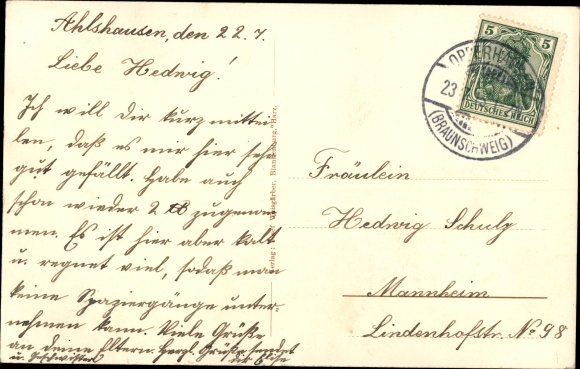 Ahlshausen, den 22.7.
Liebe Hedwig!
Ich will dir kurz mittei-
len, daß es mir hier sehr
gut gefällt. Habe auch
schon wieder 2 ℔ zugenom-
men. Es ist hier aber kalt
u. regnet viel, sodaß man
keine Spaziergänge unter-
nehmen kann. Viele Grüße
an deine Eltern. Herzl. Grüße sendet
u. Geschwister dir Elise
Fräulein
Hedwig Schulz
Mannheim
Lindenhofstr. No 98
5 5
DEUTSCHES REICH
23
(BRAUNSCHWEIG)
Verlag: Blankenburg, Harz.